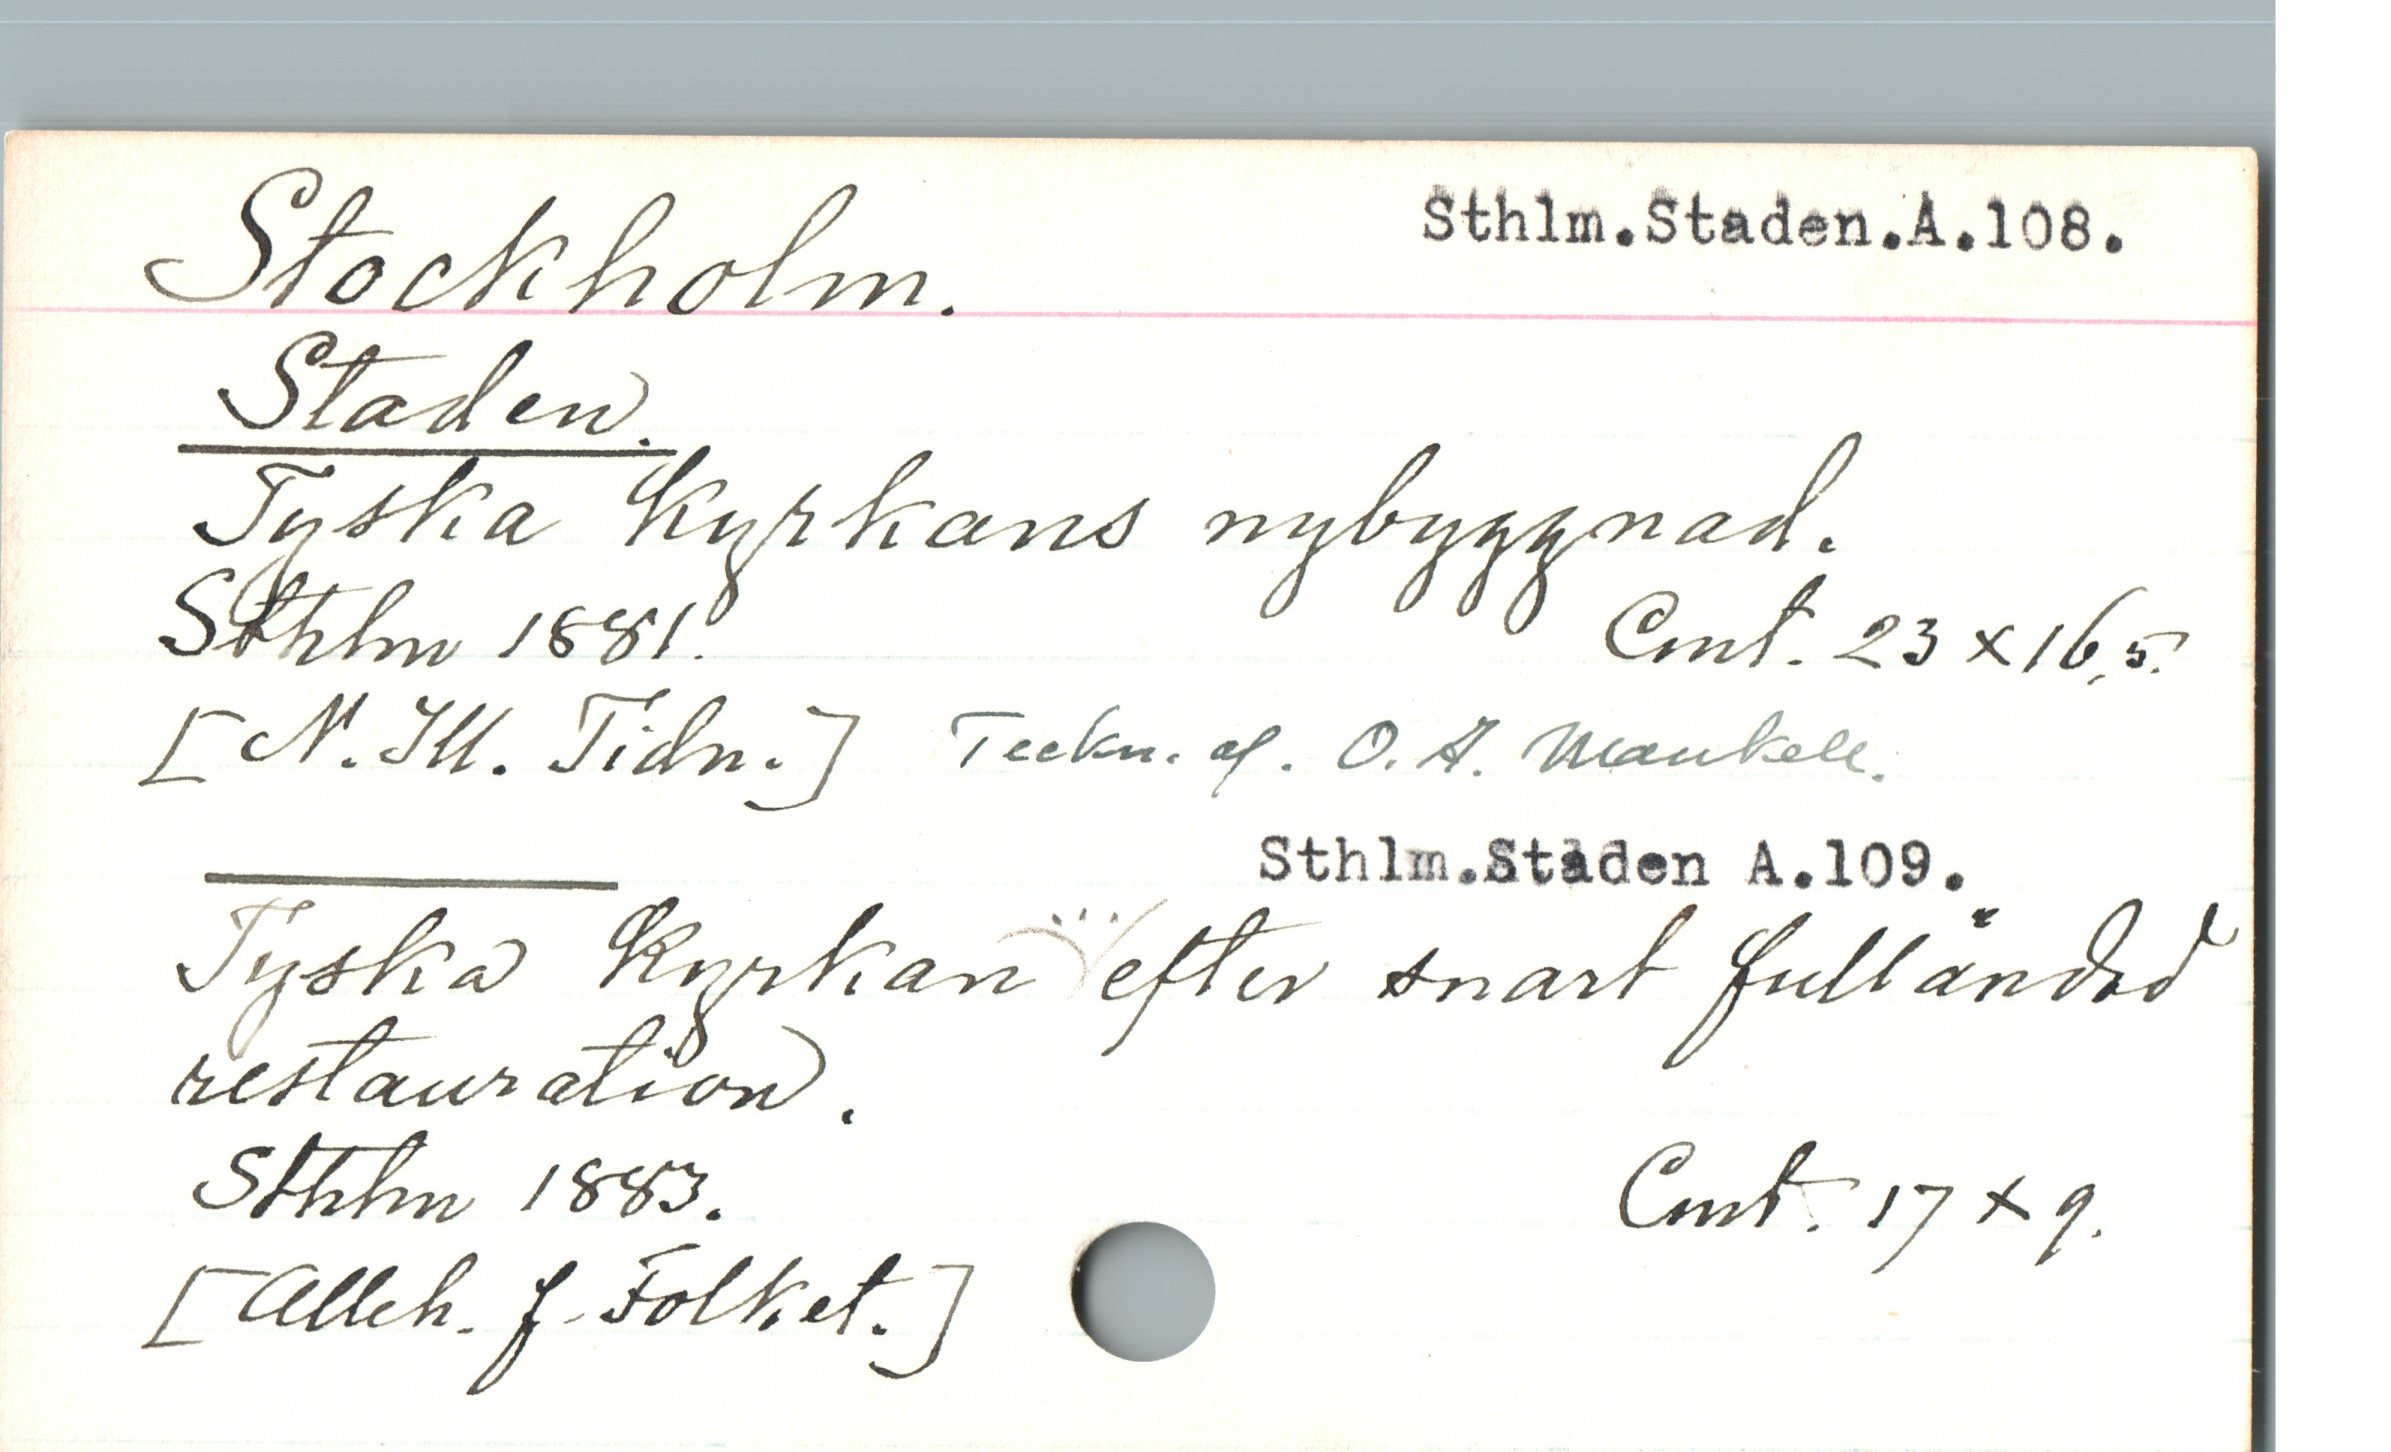 Stockholm. Sthlm.Staden.A.108.
Staden.
Tyska Kyrkans nybyggnad.
Sthlm 1881. Cmt. 23 x 16,5.
[N. Ill. Tidn.] Teckn. af. O. A. Mankell.
Sthlm.Staden A.109.
Tyska Kyrkan efter snart fulländad
restauration.
Sthlm 1883. Cmt. 17 x 9.
[Alleh. f. Folket.]